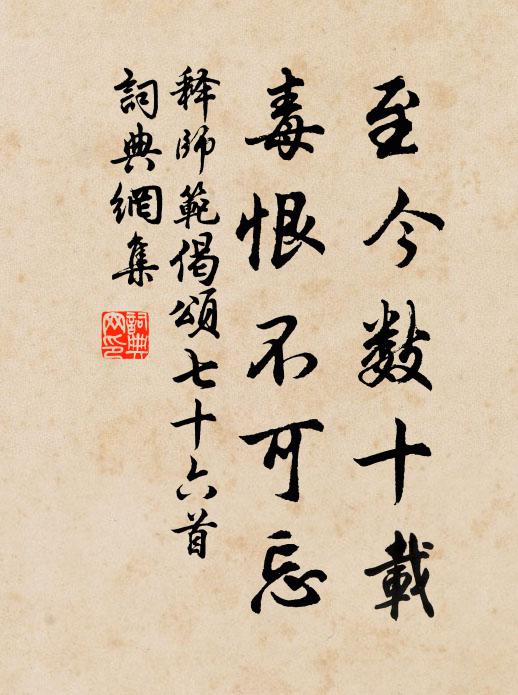 至今数十載
毒恨不可忘
释師範偈頌七十六首
詞典網集
詞典網印